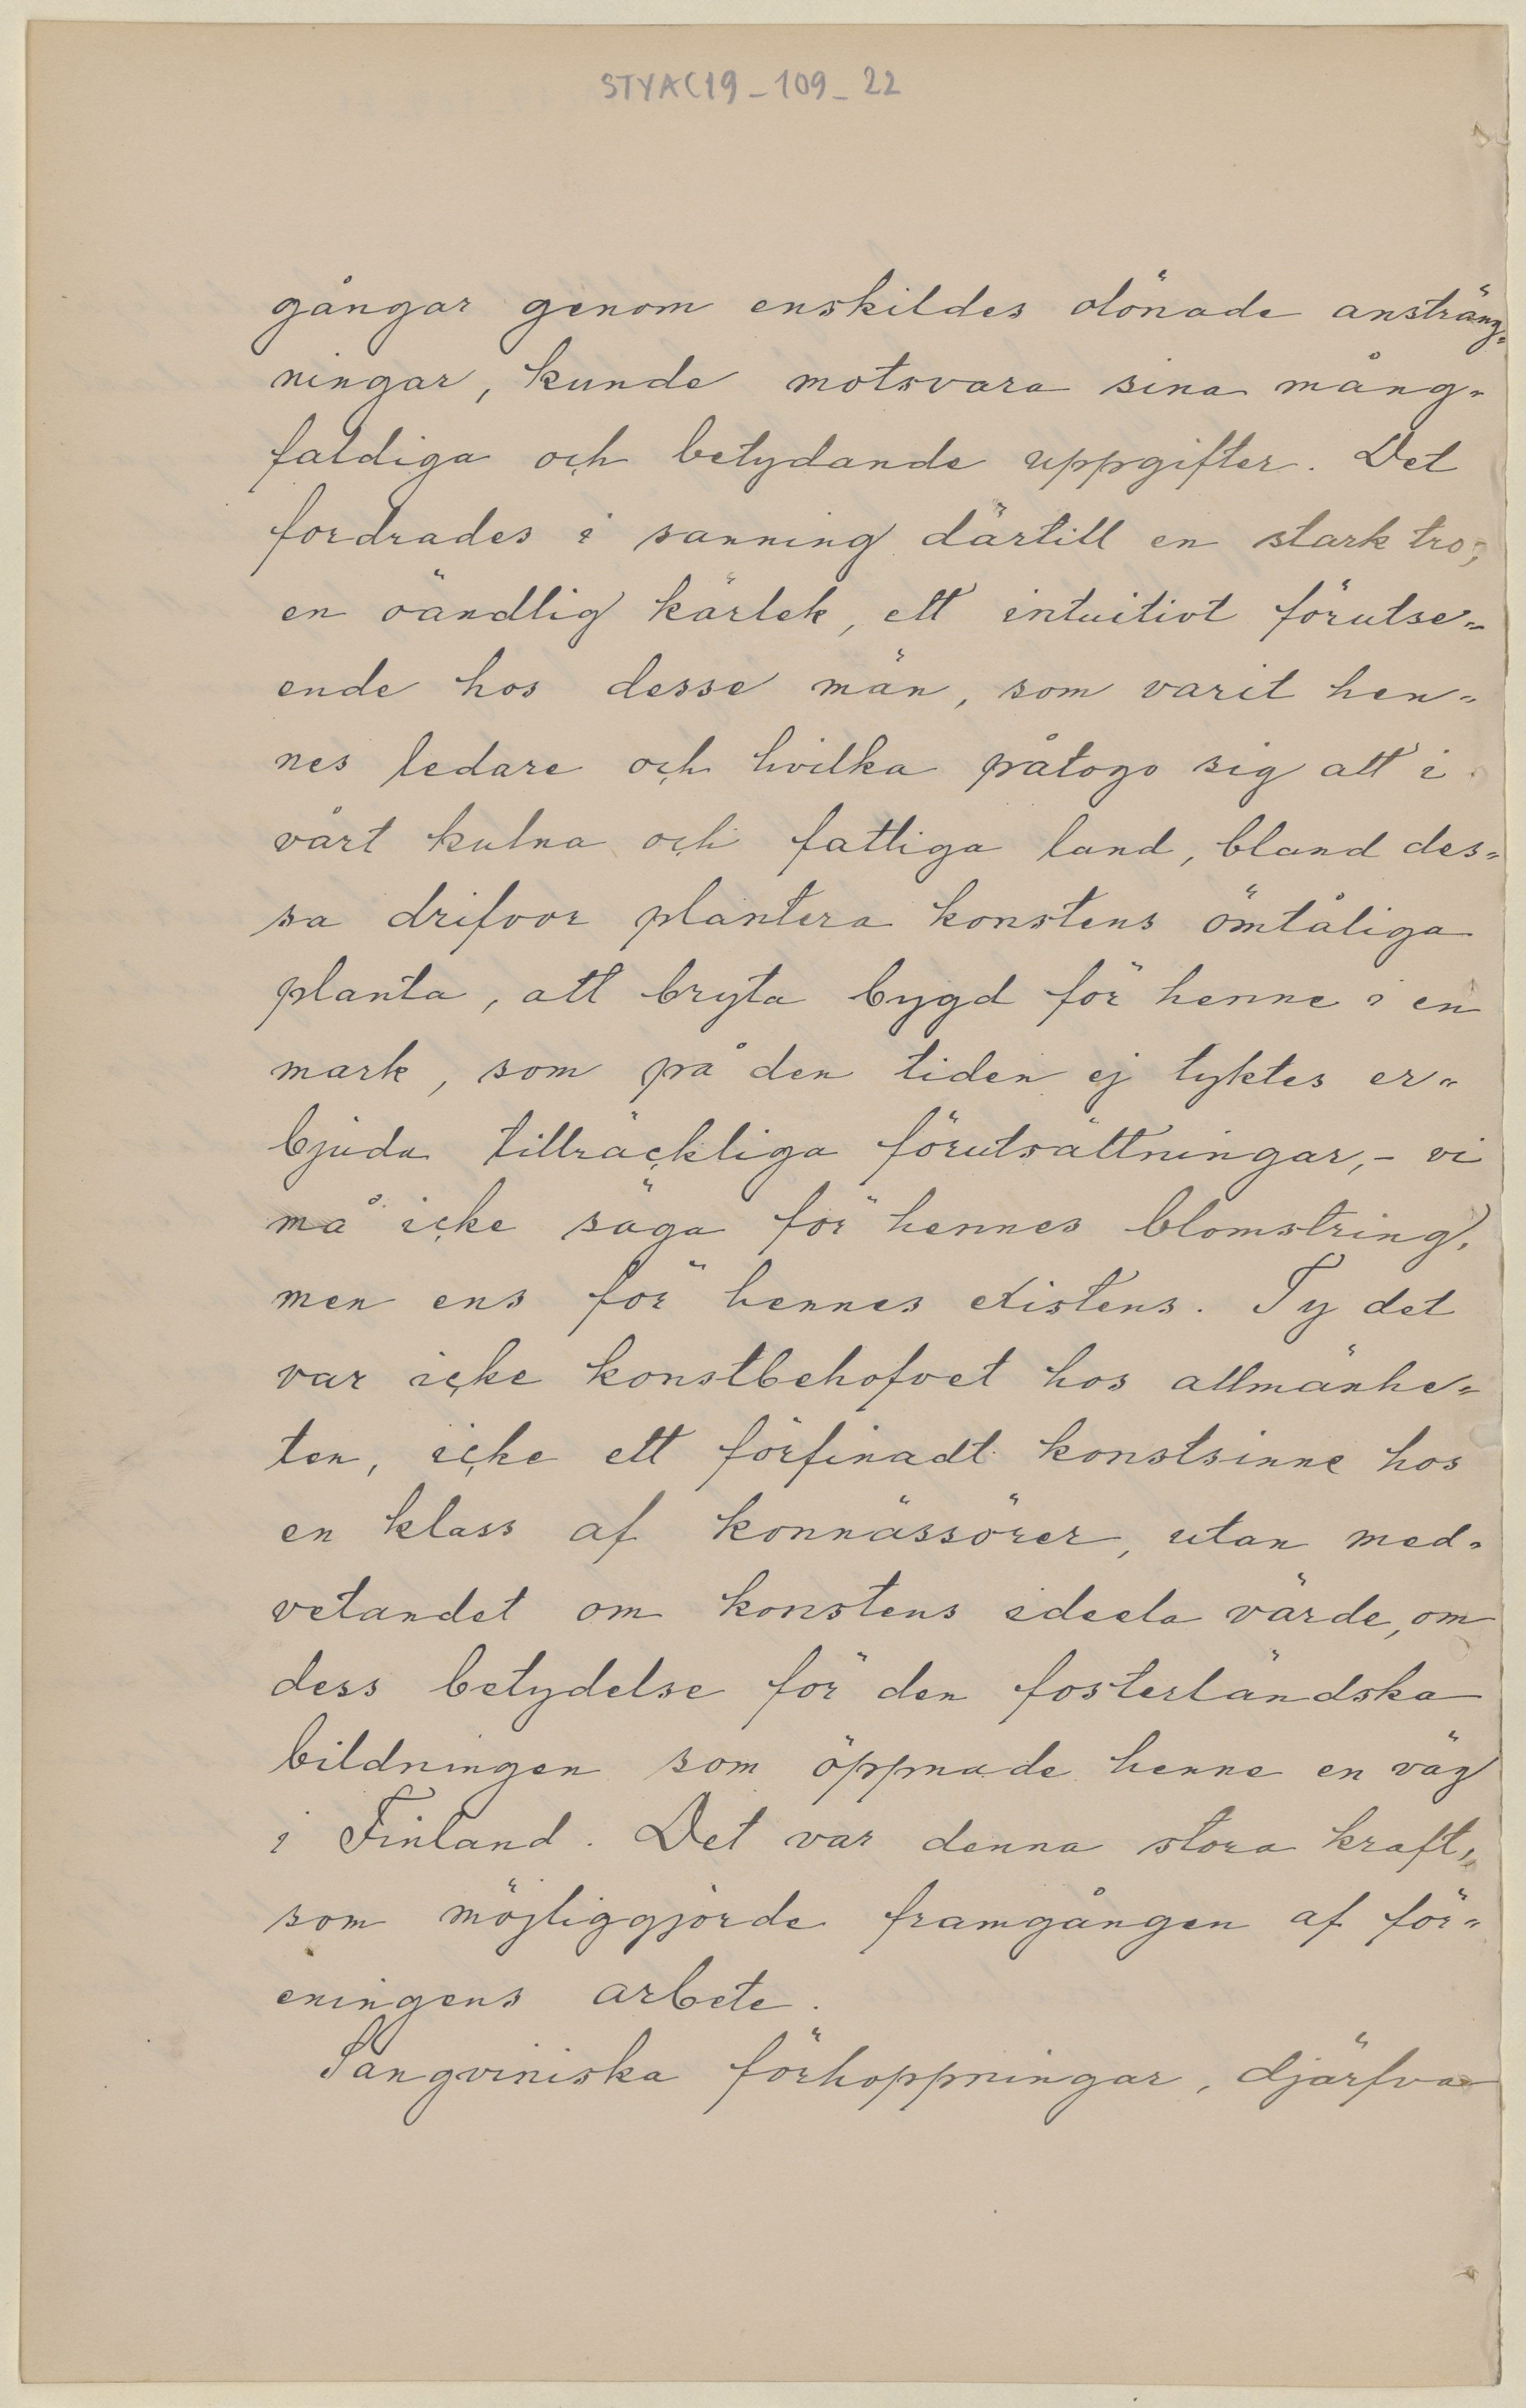 STYAC19_109_22
gångar genom enskildes olönade ansträng-
ningar, kunde motsvara sina mång-
faldiga och betydande uppgifter. Det
fordrades i sanning därtill en stark tro,
en oändlig kärlek, ett intuitivt förutse-
ende hos desse män, som varit hen-
nes ledare och hvilka påtogo sig att i
vårt kulna och fattiga land, bland des-
sa drifvor plantera konstens ömtåliga
planta, att bryta bygd för henne i en
mark, som på den tiden ej tyktes er-
bjuda tillräckliga förutsättningar, - vi
må icke säga för hennes blomstring,
men ens för hennes existens. Ty det
var icke konstbehofvet hos allmänhe-
ten, icke ett förfinadt konstsinne hos
en klass af konnässörer, utan med-
vetandet om konstens ideela värde, om
dess betydelse för den fosterländska
bildningen som öppnade henne en väg
i Finland. Det var denna stora kraft,
som möjliggjorde framgången af för-
eningens arbete.
Sangviniska förhoppningar, djärfva